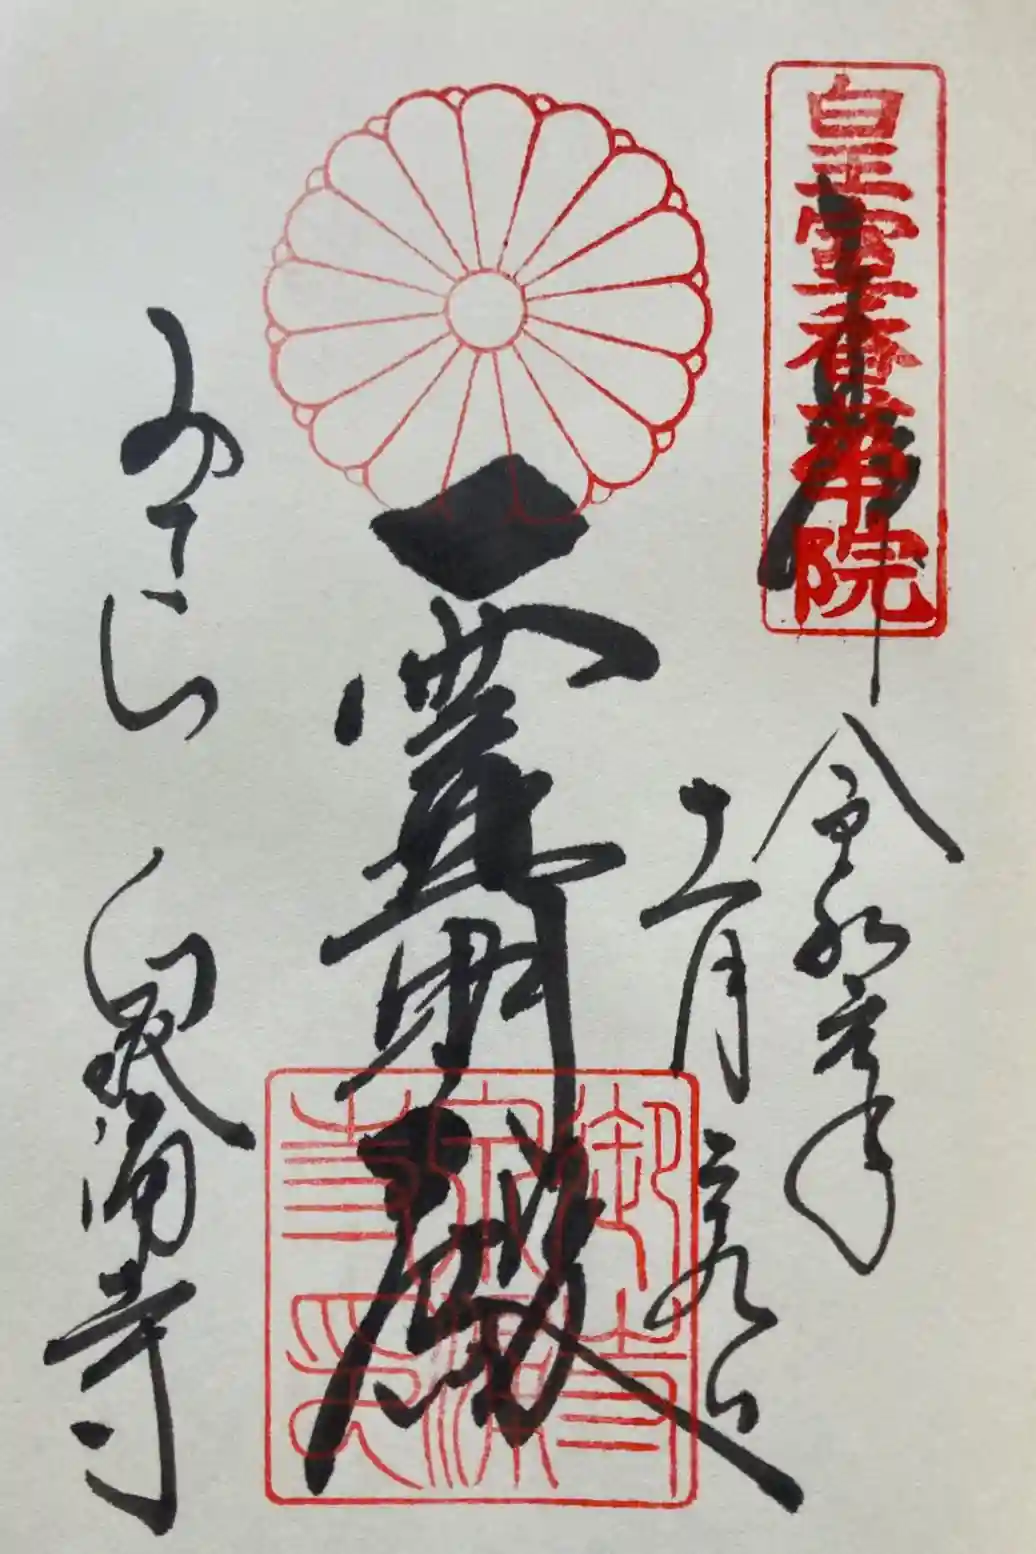 皇室香華院
奉拝
令和元年
十一月二十九日
霊明殿
みてら
泉涌寺
御寺
泉涌